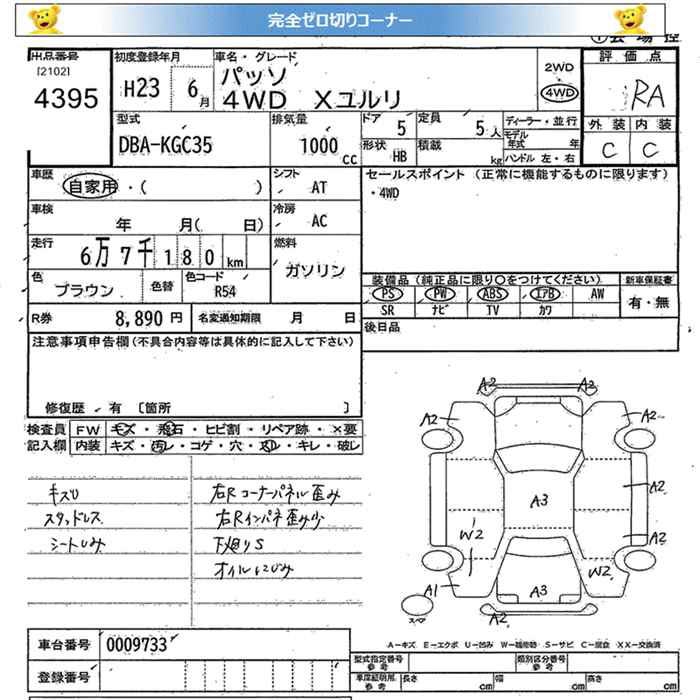 完全ゼロ切りコーナー
出品番号 初度登録年月 車名・グレード 評価点
[2102]
4395
H23 6月
パッソ
4WD Xユルリ
2WD
4WD
RA
型式 排気量 ドア 定員 ディーラー・並行 外装 内装
DBA-KGC35 1000cc 5 5人
モデル年式 年
形状 HB 積載 kg ハンドル 左・右
C C
車歴 自家用・( ) シフト AT
セールスポイント (正常に機能するものに限ります)
・4WD
車検 年 月( 日) 冷房 AC
走行 6万7千180km 燃料 ガソリン
色 ブラウン 色替 色コード R54
装備品(純正品に限り○をつけてください) 新車保証書
PS PW ABS エアB AW 有・無
SR ナビ TV カワ
R券 8,890円 名変通知期限 月 日
後日品
注意事項申告欄(不具合内容等は具体的に記入して下さい)
修復歴・有 [箇所 ]
検査員 FW キズ・飛石・ヒビ割・リペア跡・×要
記入欄 内装 キズ・汚レ・コゲ・穴・スレ・キレ・破レ
キズU
スタッドレス
シートしみ
右Rコーナーパネル歪み
右Rインパネ歪み少
下廻りS
オイルにじみ
A2 A2
A2 A2
A3 A2
W2 A2
W2
A1 A3
A2 A2
スペア
車台番号 0009733
登録番号
A-キズ E-エクボ U-凹み W-補修跡 S-サビ C-腐食 XX-交換済
型式指定番号 参考 類別区分番号 参考
車庫証明用 参考 長さ cm 幅 cm 高さ cm